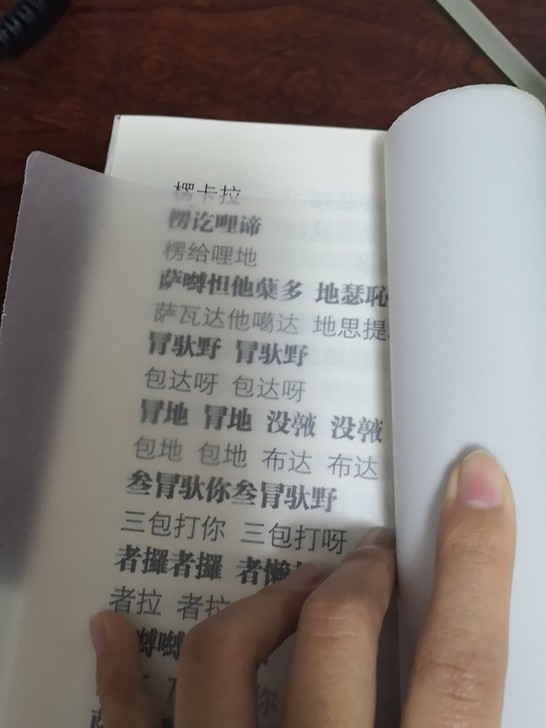 楞卡拉
楞讫哩谛
楞给哩地
萨嚩怛他蘖多 地瑟恥
萨瓦达他噶达 地思提
冐驮野 冐驮野
包达呀 包达呀
冐地 冐地 没
包地 包地 布达 布达
叁冐驮你叁冐驮野
三包打你 三包打呀
者攞者攞 者懒
者拉 者拉
嚩嚩
你
萨